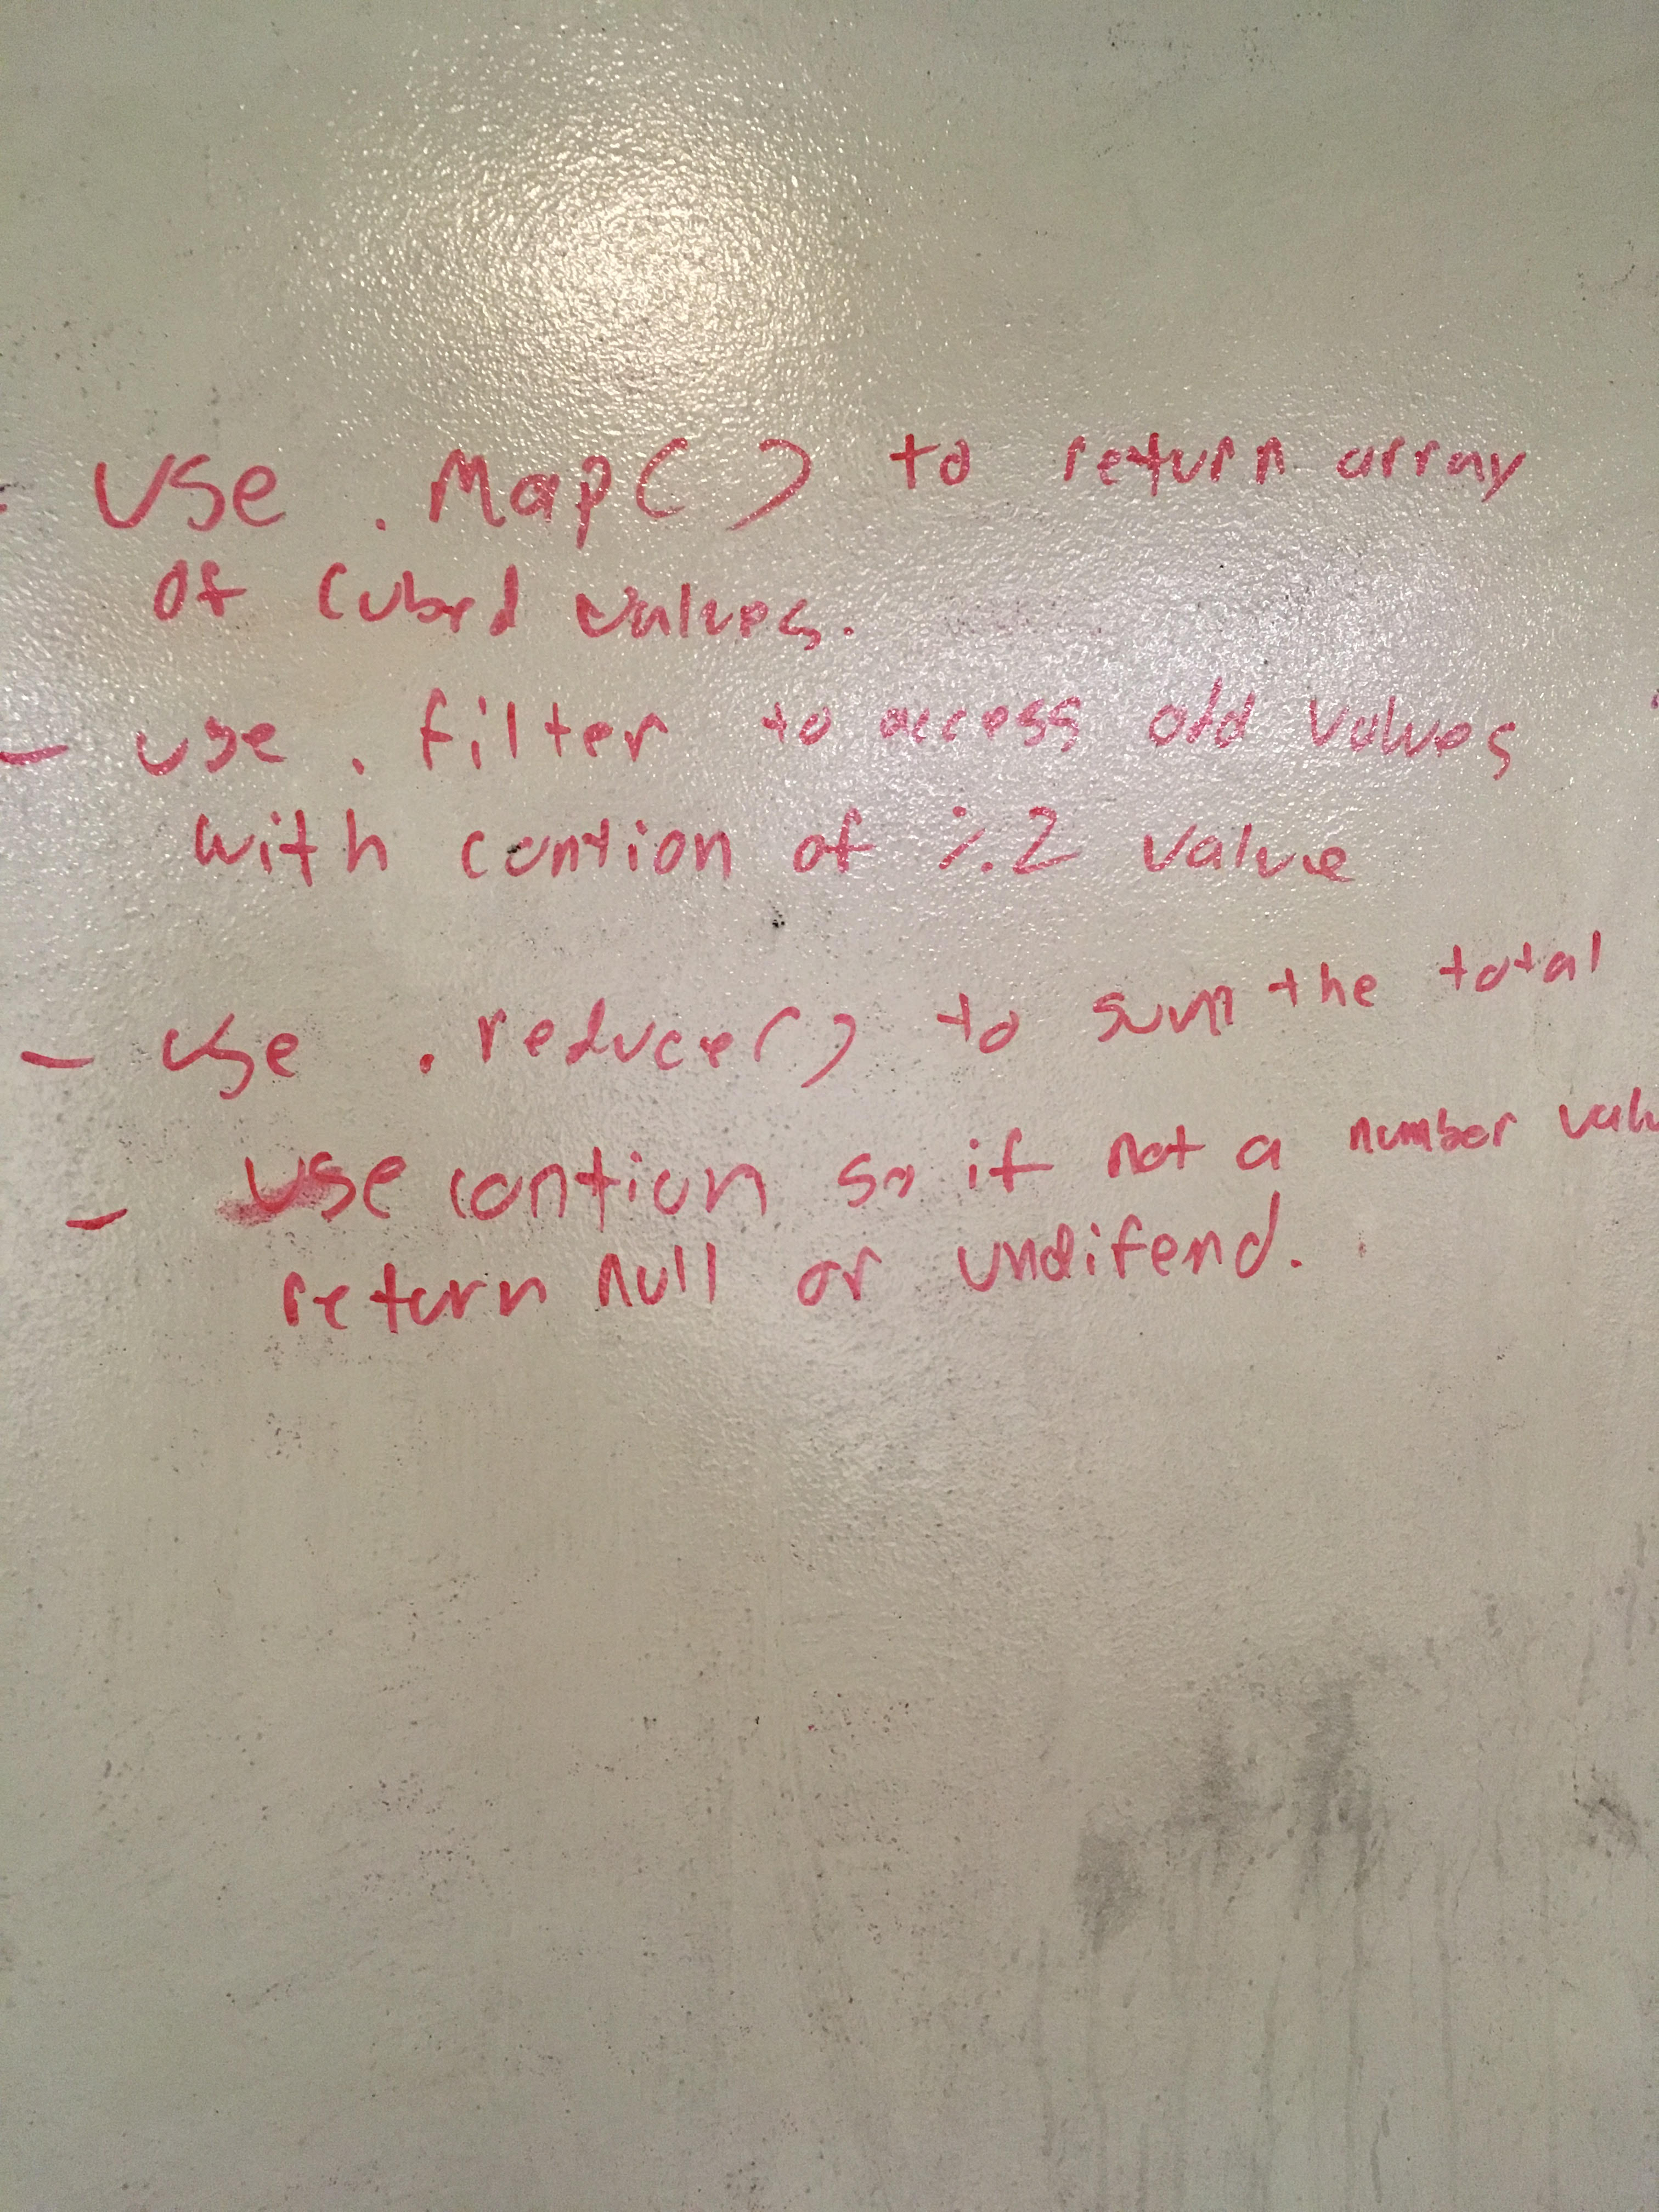 - Use .Map() to return array
of Cubed values.
- use .filter to access odd values
with contion of %2 value
- Use .reduce() to sum the total
- Use contion so if not a number valu
return null or undifend.